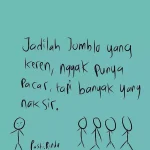 Jadilah Jumblo yang
keren, nggak punya
pacar, tapi banyak yang
naksir.